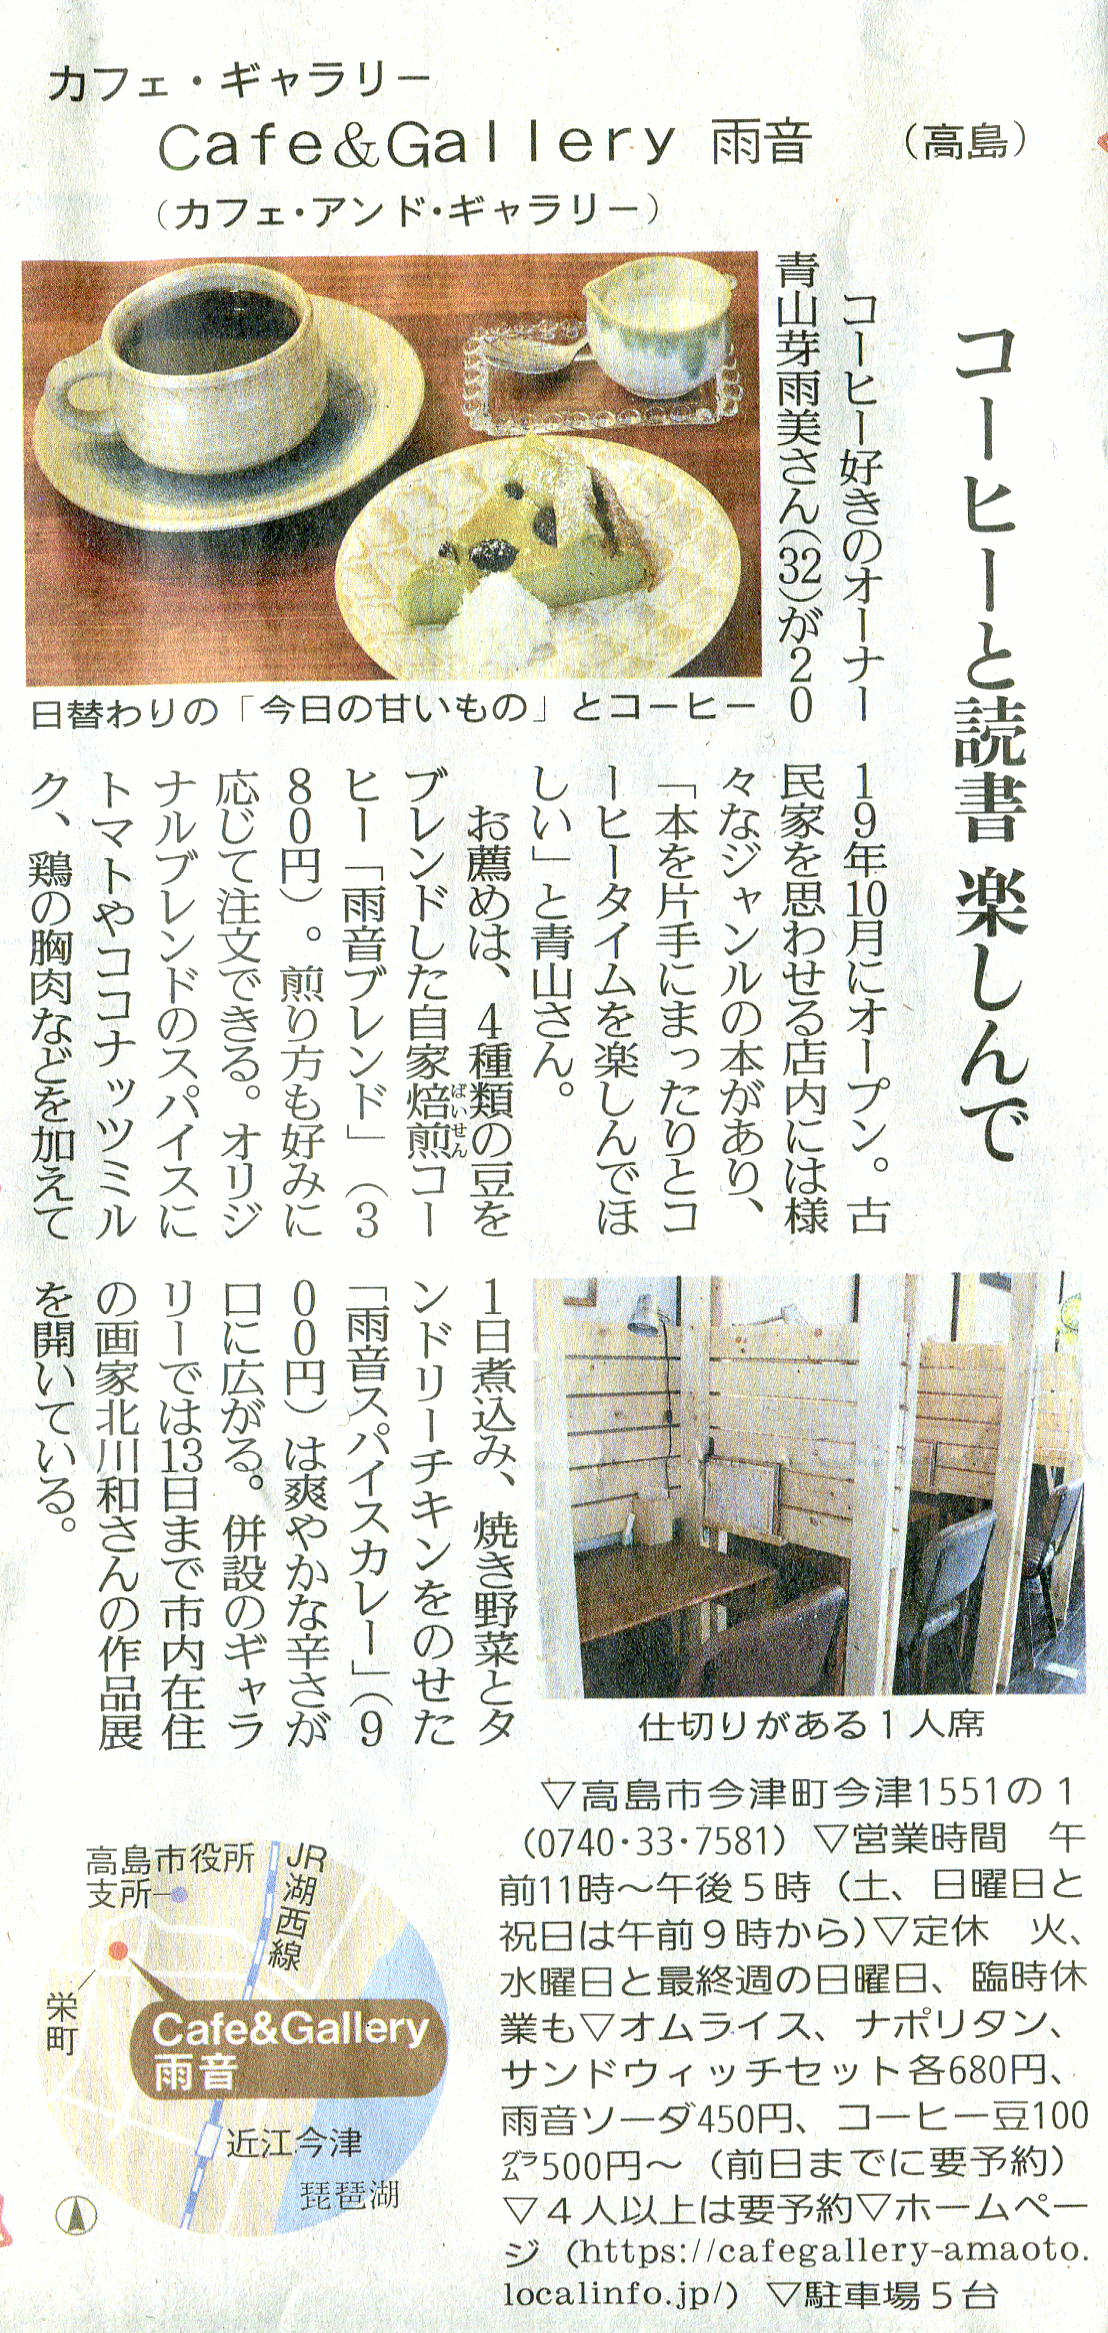 カフェ・ギャラリー
Cafe&Gallery 雨音 (高島)
(カフェ・アンド・ギャラリー)
コーヒーと読書 楽しんで
コーヒー好きのオーナー
青山芽雨美さん(32)が20
日替わりの「今日の甘いもの」とコーヒー
19年10月にオープン。古
民家を思わせる店内には様
々なジャンルの本があり、
「本を片手にまったりとコ
ーヒータイムを楽しんでほ
しい」と青山さん。
お薦めは、4種類の豆を
ブレンドした自家焙煎コー
ばいせん
ヒー「雨音ブレンド」(3
80円)。煎り方も好みに
応じて注文できる。オリジ
ナルブレンドのスパイスに
トマトやココナッツミル
ク、鶏の胸肉などを加えて
1日煮込み、焼き野菜とタ
ンドリーチキンをのせた
「雨音スパイスカレー」(9
00円)は爽やかな辛さが
口に広がる。併設のギャラ
リーでは13日まで市内在住
の画家北川和さんの作品展
を開いている。
仕切りがある1人席
▽高島市今津町今津1551の1
(0740・33・7581)▽営業時間 午
前11時〜午後5時(土、日曜日と
祝日は午前9時から)▽定休 火、
水曜日と最終週の日曜日、臨時休
業も▽オムライス、ナポリタン、
サンドウィッチセット各680円、
雨音ソーダ450円、コーヒー豆100
グラム500円〜(前日までに要予約)
▽4人以上は要予約▽ホームペー
ジ(https://cafegallery-amaoto.
localinfo.jp/)▽駐車場5台
高島市役所
支所
JR湖西線
栄町
Cafe&Gallery
雨音
近江今津
琵琶湖